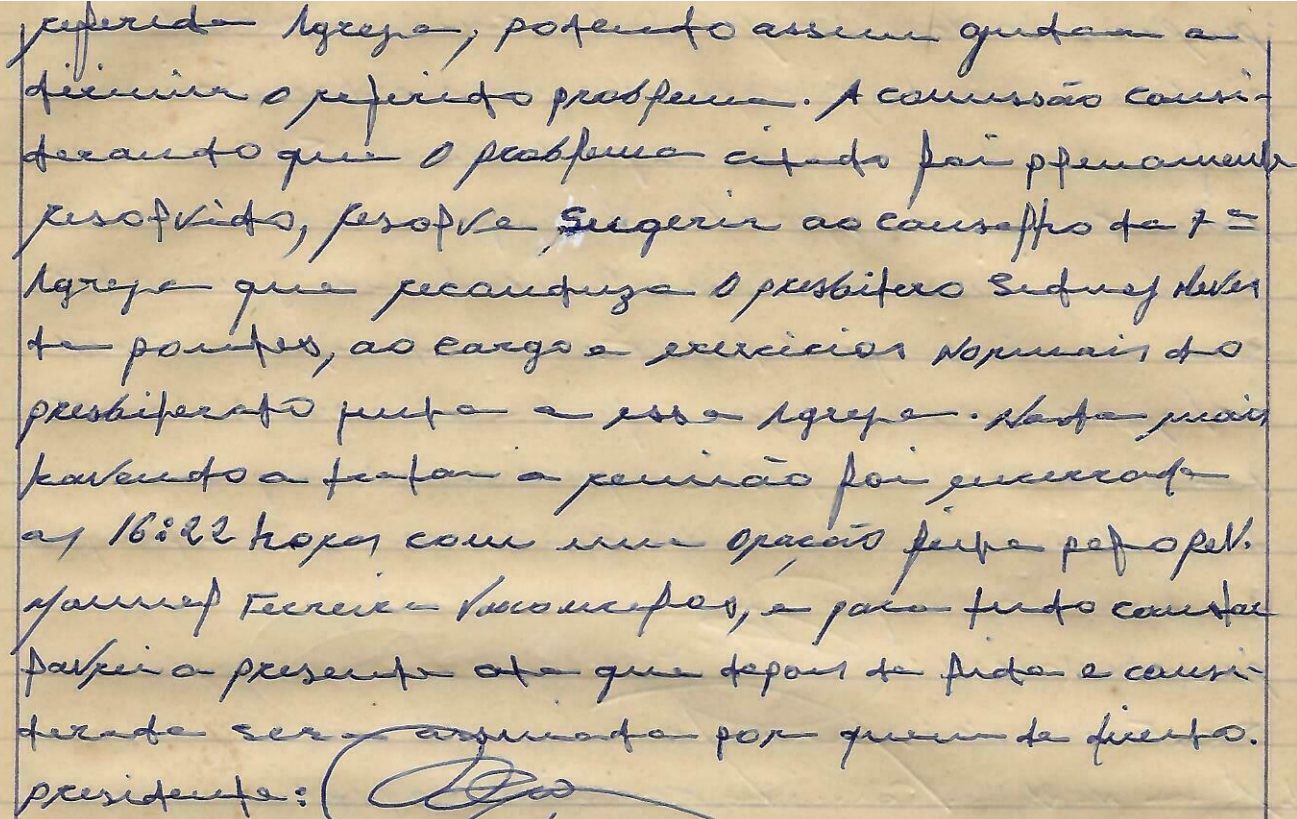 referida Igreja, podendo assim ajudar a
dirimir o referido problema. A comissão consi-
derando que o problema citado foi plenamente
resolvido, resolve sugerir ao conselho da 7ª
Igreja que reconduza o presbítero Sidney Neves
de pontes, ao cargo e exercícios Normais do
presbiterato junto a essa Igreja. Nada mais
havendo a tratar a reunião foi encerrada
as 16:22 horas com uma oração feita pelo Rev.
Manuel Ferreira Vasconcelos, e para tudo constar
lavrei a presente ata que depois de lida e consi-
derada será assinada por quem de direito.
presidente: